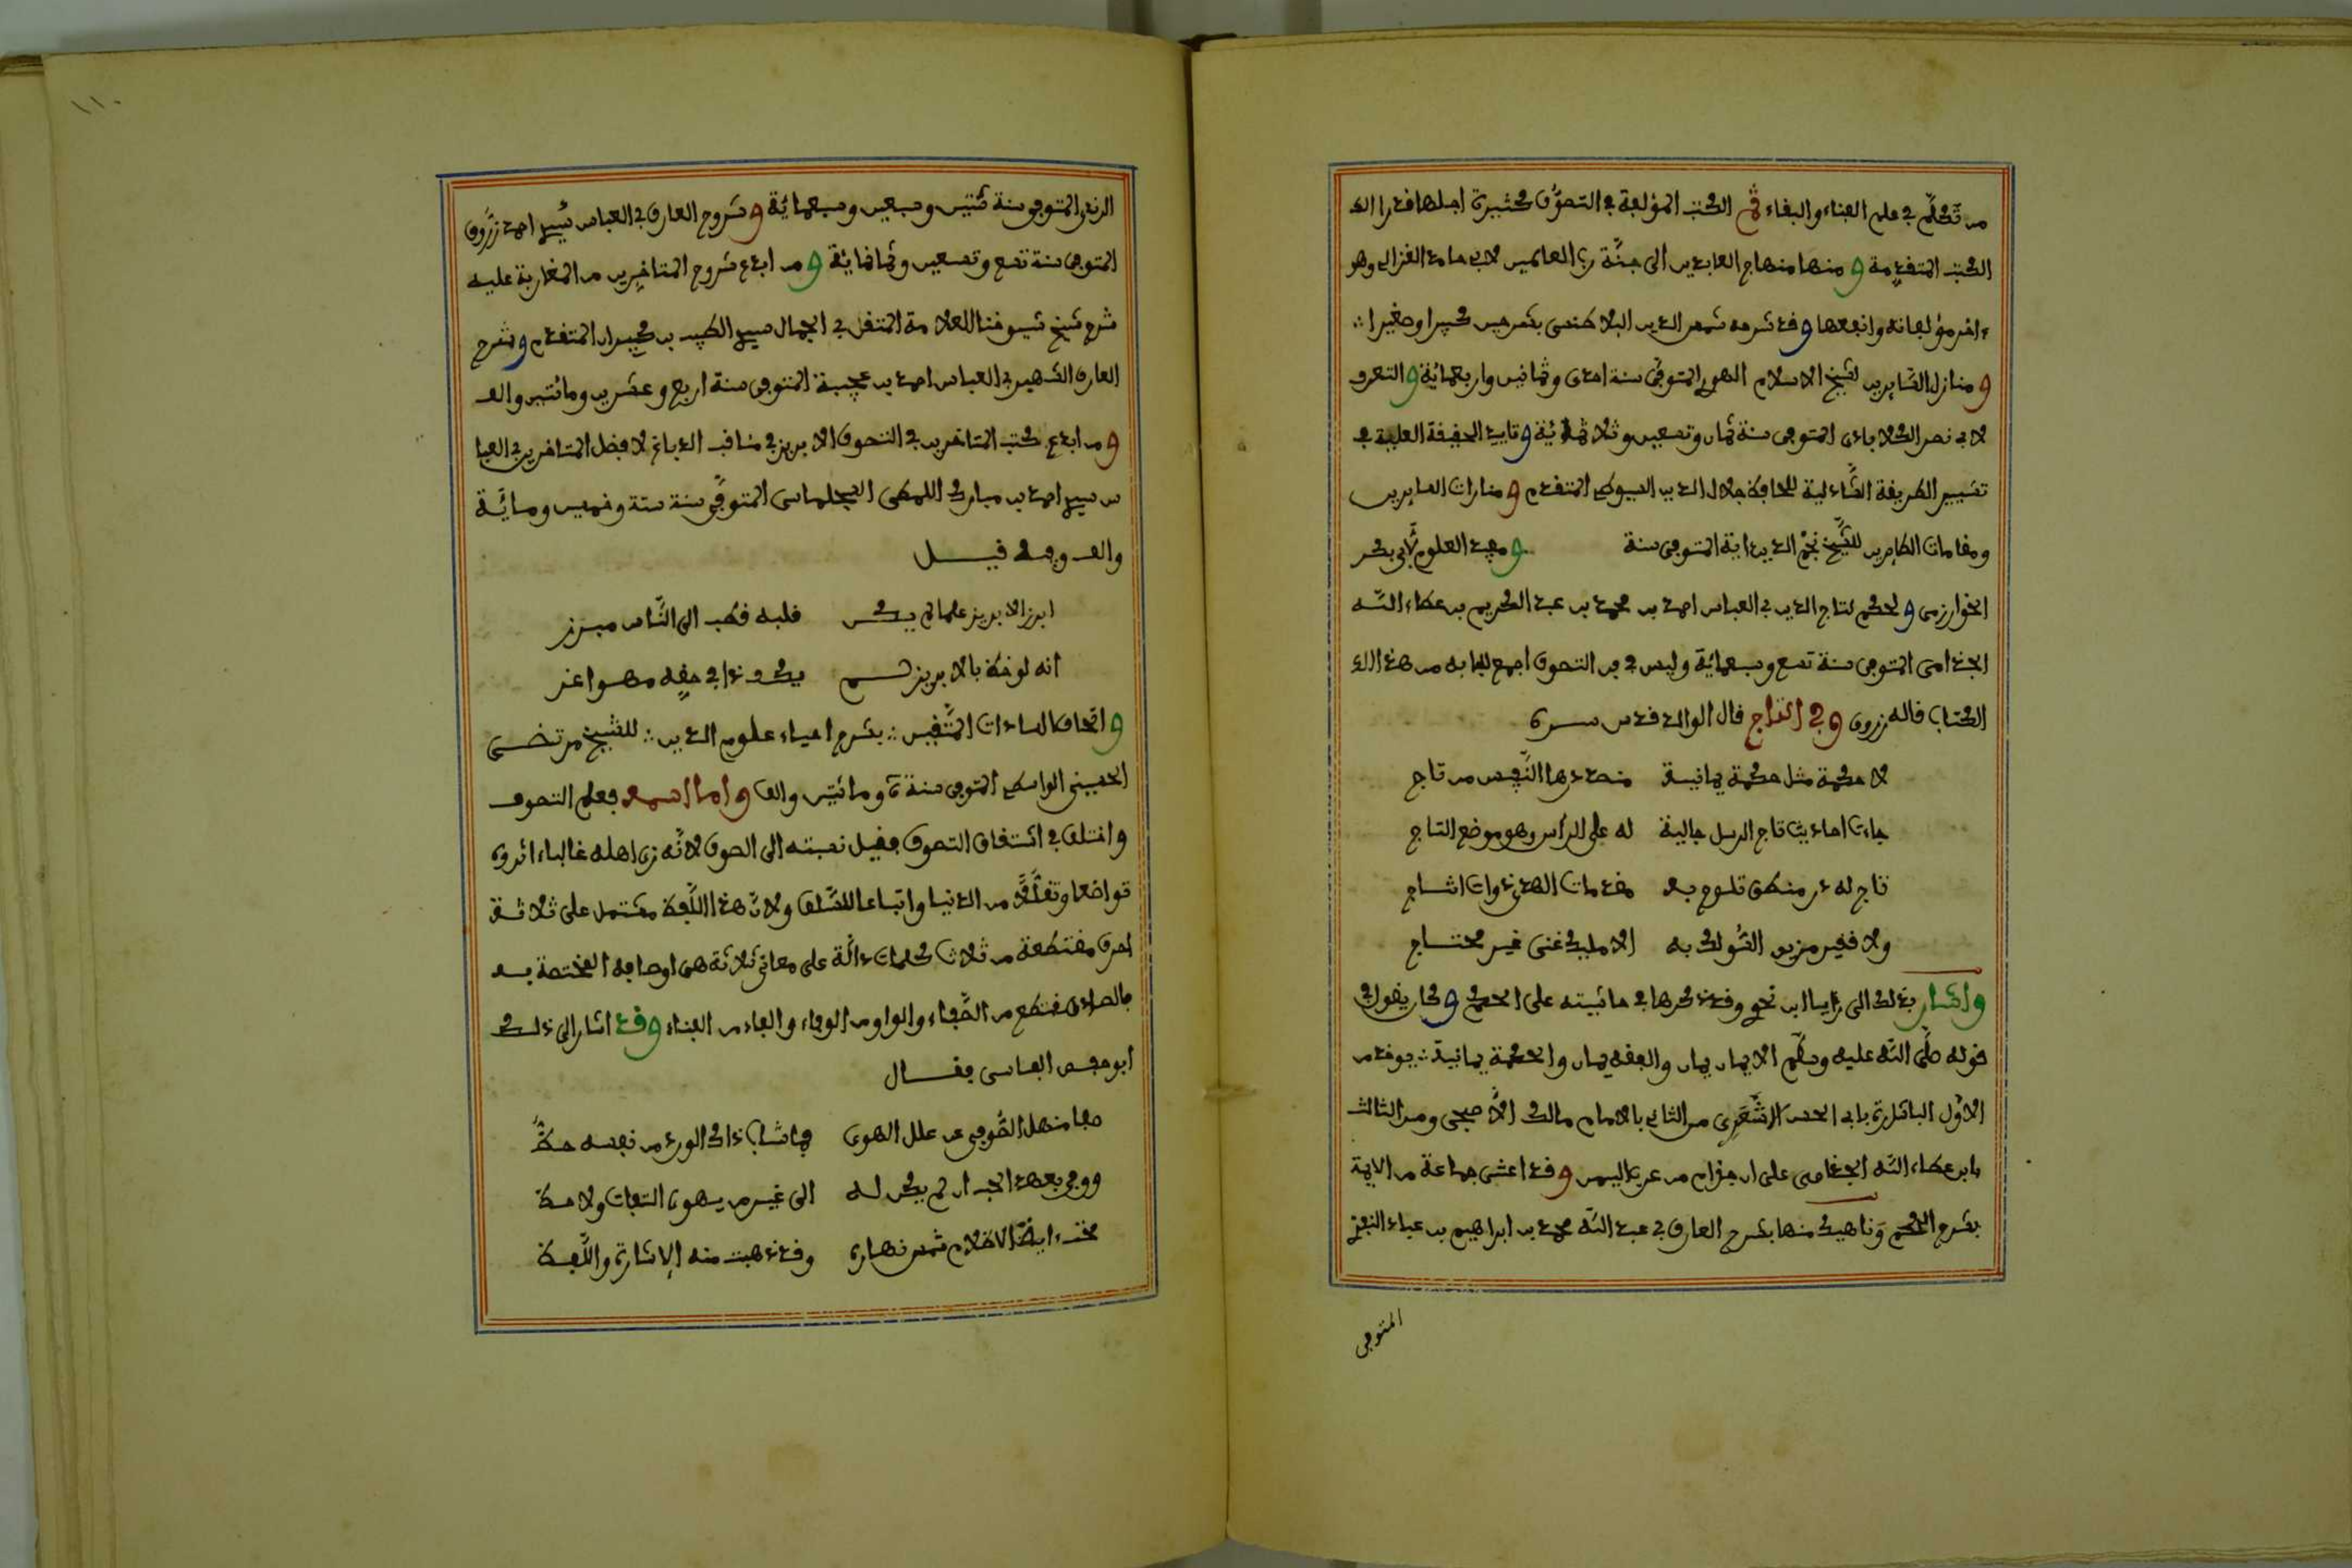 من تكلم في علم الفناء والبقاء ثم الكتب المؤلفة في التصوف كثيرة اجلها قدرا
الكتب المتقدمة ومنها منهاج العابدين الى جنة رب العالمين لابي حامد الغزالي وهو
ءاخر مؤلفاته وانفعها وقد شرحه شمس الدين البلاطنسي بشرحين كبيرا وصغيرا
ومنازل السائرين لشيخ الاسلام الهروي المتوفى سنة احدى وثمانين واربعمائة والتعرف
لابي نصر الكلاباذي المتوفى سنة ثمان وتسعين وثلاثمائة وتاييد الحقيقة العلية في
تشييد الطريقة الشاذلية للحافظ جلال الدين السيوطي المتقدم ومنارات السايرين
ومقامات الطايرين للشيخ نجم الدين داية المتوفى سنة ومفيد العلوم لابي بكر
الخوارزمي والحكم لتاج الدين ابي العباس احمد بن محمد بن عبد الكريم بن عطاء الله
الجذامي المتوفى سنة تسع وسبعمائة وليس في فن التصوف اجمع للبابه من هذا
الكتاب قاله زروق وفي التاج قال الوالد قدس سره
لا حكمة مثل حكمة يمانية مصدرها النفيس من تاج
جاءت احاديث تاج الرسل جالية له على الراس وهو موضع التاج
تاج له در منطق تلوح به مقدمات الهدى ذوات انتاج
ولا فقير مزيد السلوك به الا مليك غنى غير محتاج
واشار بذلك الى زايا ابن نحو وقد ذكرها في حاشيته على الحكم وكان يقول في
قوله صلى الله عليه وسلم الايمان يمان والفقه يمان والحكمة يمانية يوخذ من
الاول البشارة بابي الحسن الاشعري من الثاني بالامام مالك الاصبحي ومن الثالث
بابن عطاء الله الجذامي على ان جذام من عرب اليمن وقد اعتنى جماعة من الايمة
بشرح الحكم وناهيك منها بشرح العارف ابي عبد الله محمد بن ابراهيم بن عباد النفزي
المتوفى
١١٠
الرندي المتوفى سنة ثنتين وسبعين وسبعمائة وشروح العارف ابي العباس سيدي احمد زروق
المتوفى سنة تسع وتسعين وثمانمائة ومن ابدع شروح المتاخرين من المغاربة عليه
شرح شيخ شيوخنا العلامة المتفنن في الجمال سيدي الطيب بن كيران المتقدم وشرح
العارف الشهير ابي العباس احمد بن عجيبة المتوفى سنة اربع وعشرين ومائتين والف
ومن ابدع كتب المتاخرين في التصوف الابريز في مناقب الدباغ لافضل المتاخرين ابي العبا
س سيدي احمد بن مبارك اللمطي السجلماسي المتوفى سنة ستة وخمسين ومائة
والف وفيه قيل
ابرز الابريز علما لم يكن قلبه قط الى الناس مبرز
انه لو خط بالابريز لم يك ذا في حقه مهوا عز
واتحاف السادات المتقين بشرح احياء علوم الدين للشيخ مرتضى
الحسيني الواسطي المتوفى سنة ومائتين والف واما اسمه فعلم التصوف
واختلف في اشتقاق التصوف فقيل نسبته الى الصوف لانه زي اهله غالبا ءاثروه
تواضعا وتقللا من الدنيا واتباعا للسلف ولان هذا اللفظ مشتمل على ثلاثة
احرف مقتطعة من ثلاث كلمات دالة على معاني ثلاثة هي اوصافه المختصة به
فالصاد مقتطع من الصفاء والواو من الوفاء والفاء من الفناء وقد اشار الى ذلك
ابو حفص الفاسي فقال
صفا منهل الصوفي عن علل الهوى فما شاب ذاك الورد من نفسه حظ
ووفى بعهد الحب اذ لم يكن له الى غير من يهوى التفات ولا لحظ
محت ءاية الاظلام شمس نهاره وقد ذهبت منه الاشارة واللفظ